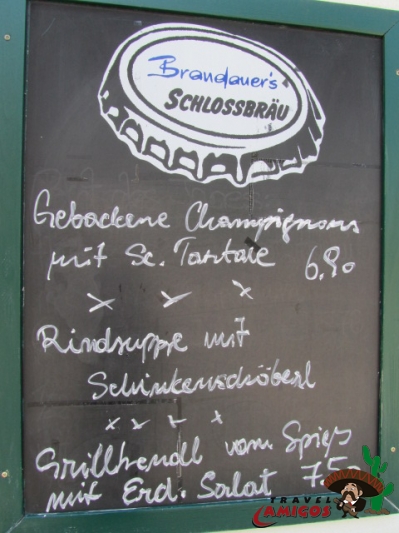 Brandauer's
SCHLOSSBRÄU
Gebackene Champignons
mit Sc. Tartare 6,90
x x x
Rindsuppe mit
Schinkenschöberl
x x x x
Grillhendl vom Spieß
mit Erd. Salat 7,5
TRAVEL
AMIGOS